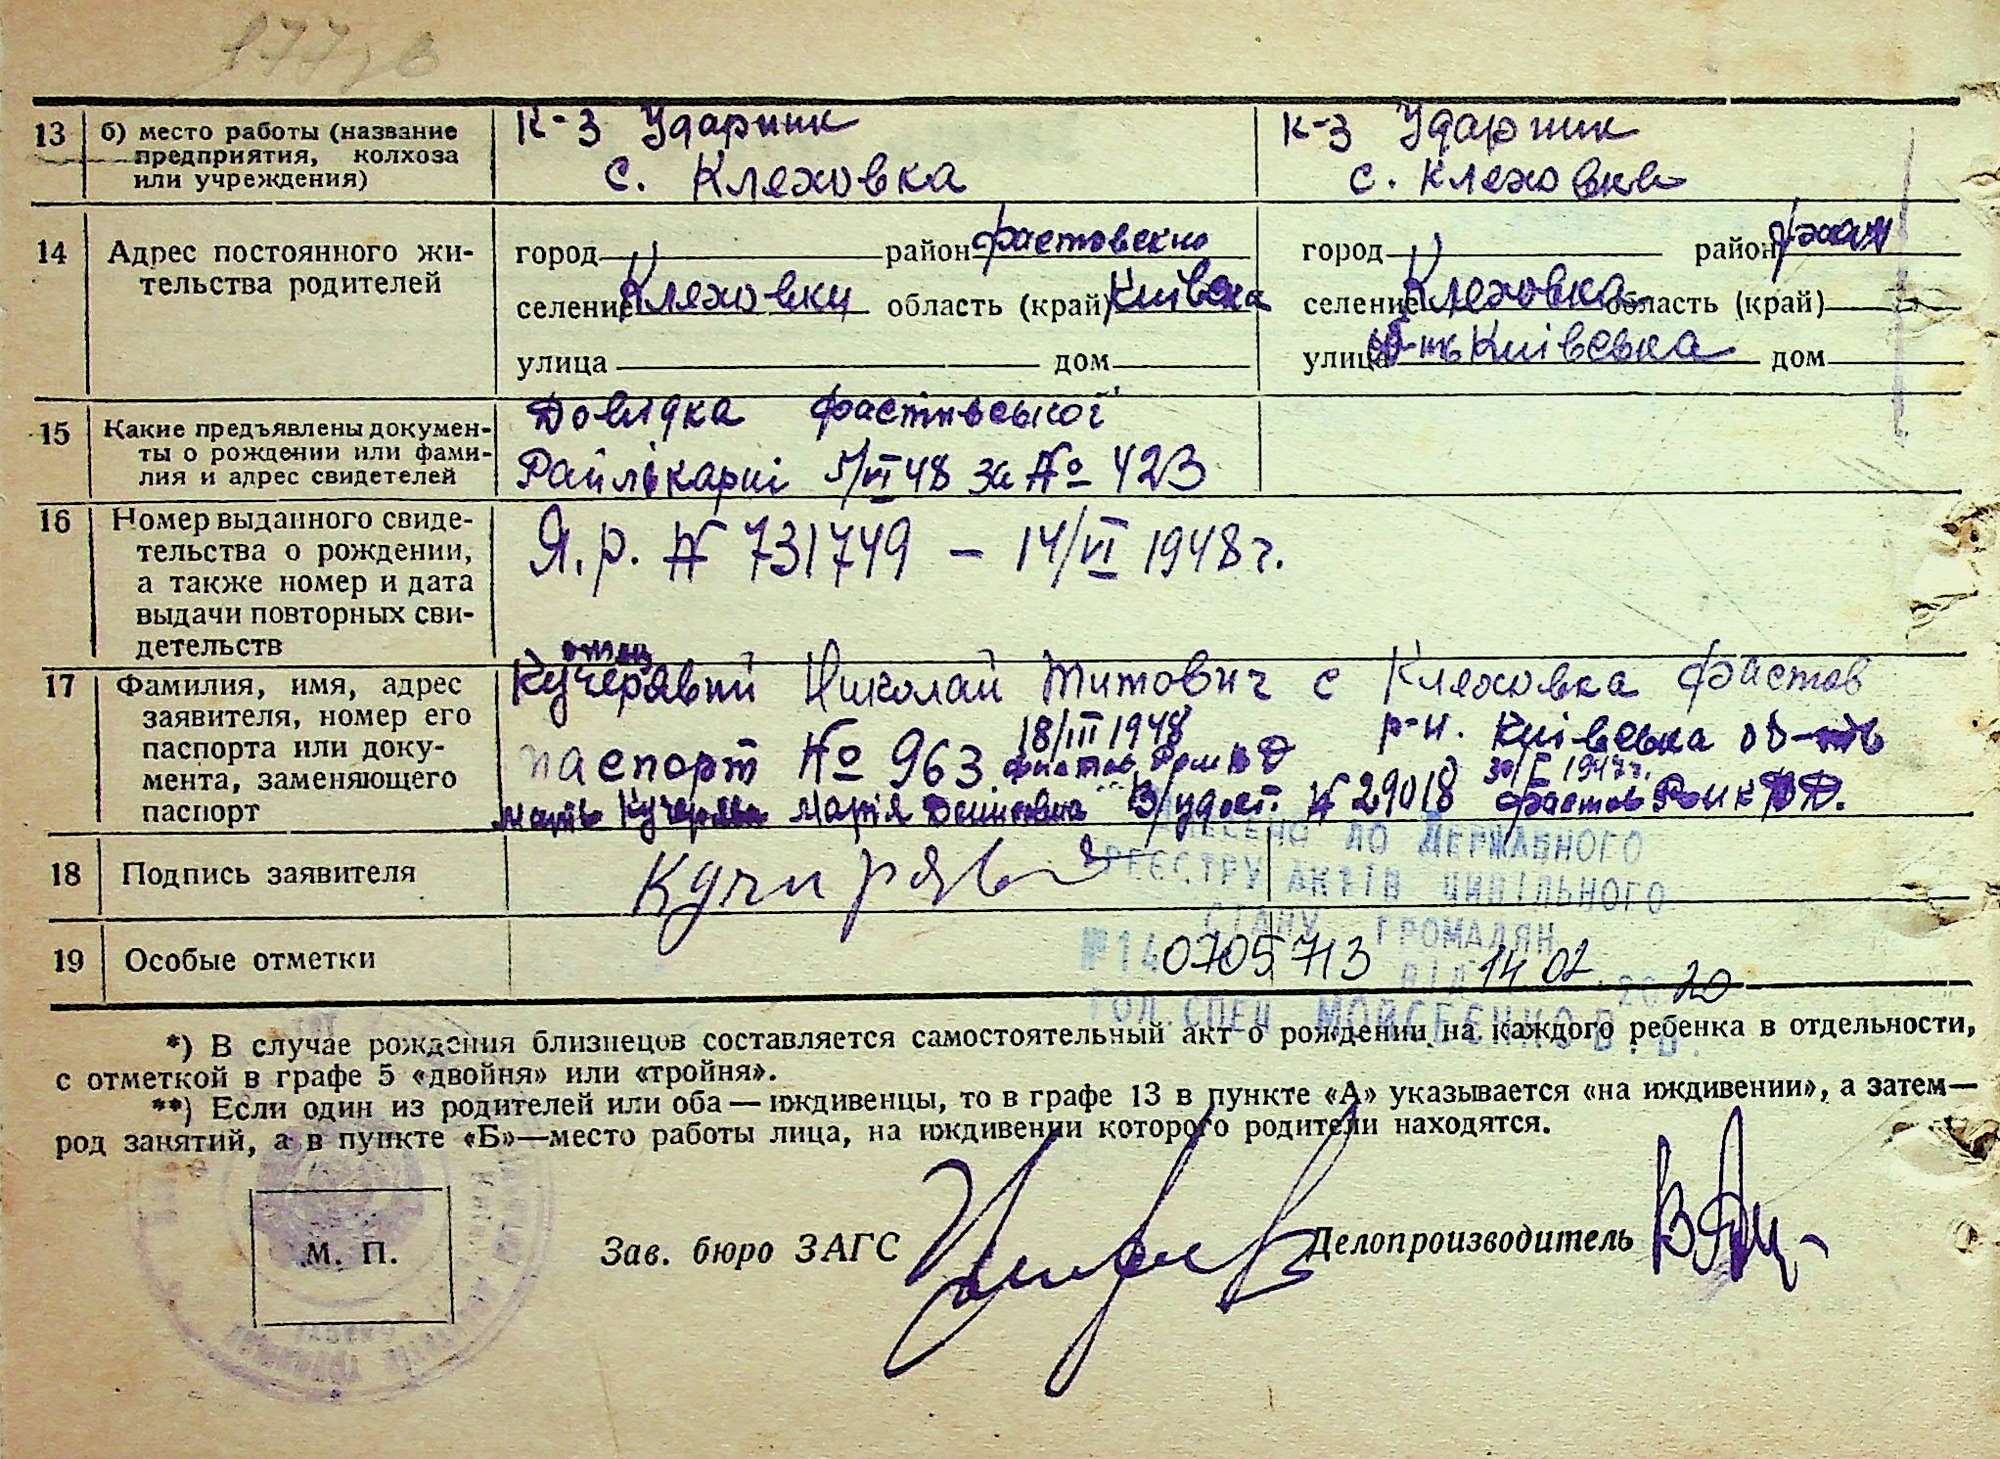 13 б) место работы (название предприятия, колхоза или учреждения)
К-з Ударник
с. Кляховка
К-з Ударник
с. Кляховка
14 Адрес постоянного жи-
тельства родителей
город район Фастовский
селение Кляховка область (край) Київська
улица дом
город район
селение Кляховка область (край)
улица Київська дом
15 Какие предъявлены докумен-
ты о рождении или фами-
лия и адрес свидетелей
Довідка Фастівської
Райлікарні 5/VI 48 за № 423
16 Номер выданного свиде-
тельства о рождении,
а также номер и дата
выдачи повторных сви-
детельств
Я.р. № 731749 — 14/VI 1948 г.
17 Фамилия, имя, адрес
заявителя, номер его
паспорта или доку-
мента, заменяющего
паспорт
отец
Кучерявий Николай Титович с Кляховка Фастов
р-н. Київська об-ть
паспорт № 963 18/III 1948
мать Марія В/удост. № 29018 Фастов
18 Подпись заявителя
Кучиряв
19 Особые отметки
ВНЕСЕНО ДО ДЕРЖАВНОГО
РЕЄСТРУ АКТІВ ЦИВІЛЬНОГО
СТАНУ ГРОМАДЯН
№ 140705713 ВІД 14 02 2020
ГОЛ. СПЕЦ МОЙСЕЄНКО В.В.
*) В случае рождения близнецов составляется самостоятельный акт о рождении на каждого ребенка в отдельности,
с отметкой в графе 5 «двойня» или «тройня».
**) Если один из родителей или оба — иждивенцы, то в графе 13 в пункте «А» указывается «на иждивении», а затем—
род занятий, а в пункте «Б»—место работы лица, на иждивении которого родители находятся.
М. П.
Зав. бюро ЗАГС
Делопроизводитель